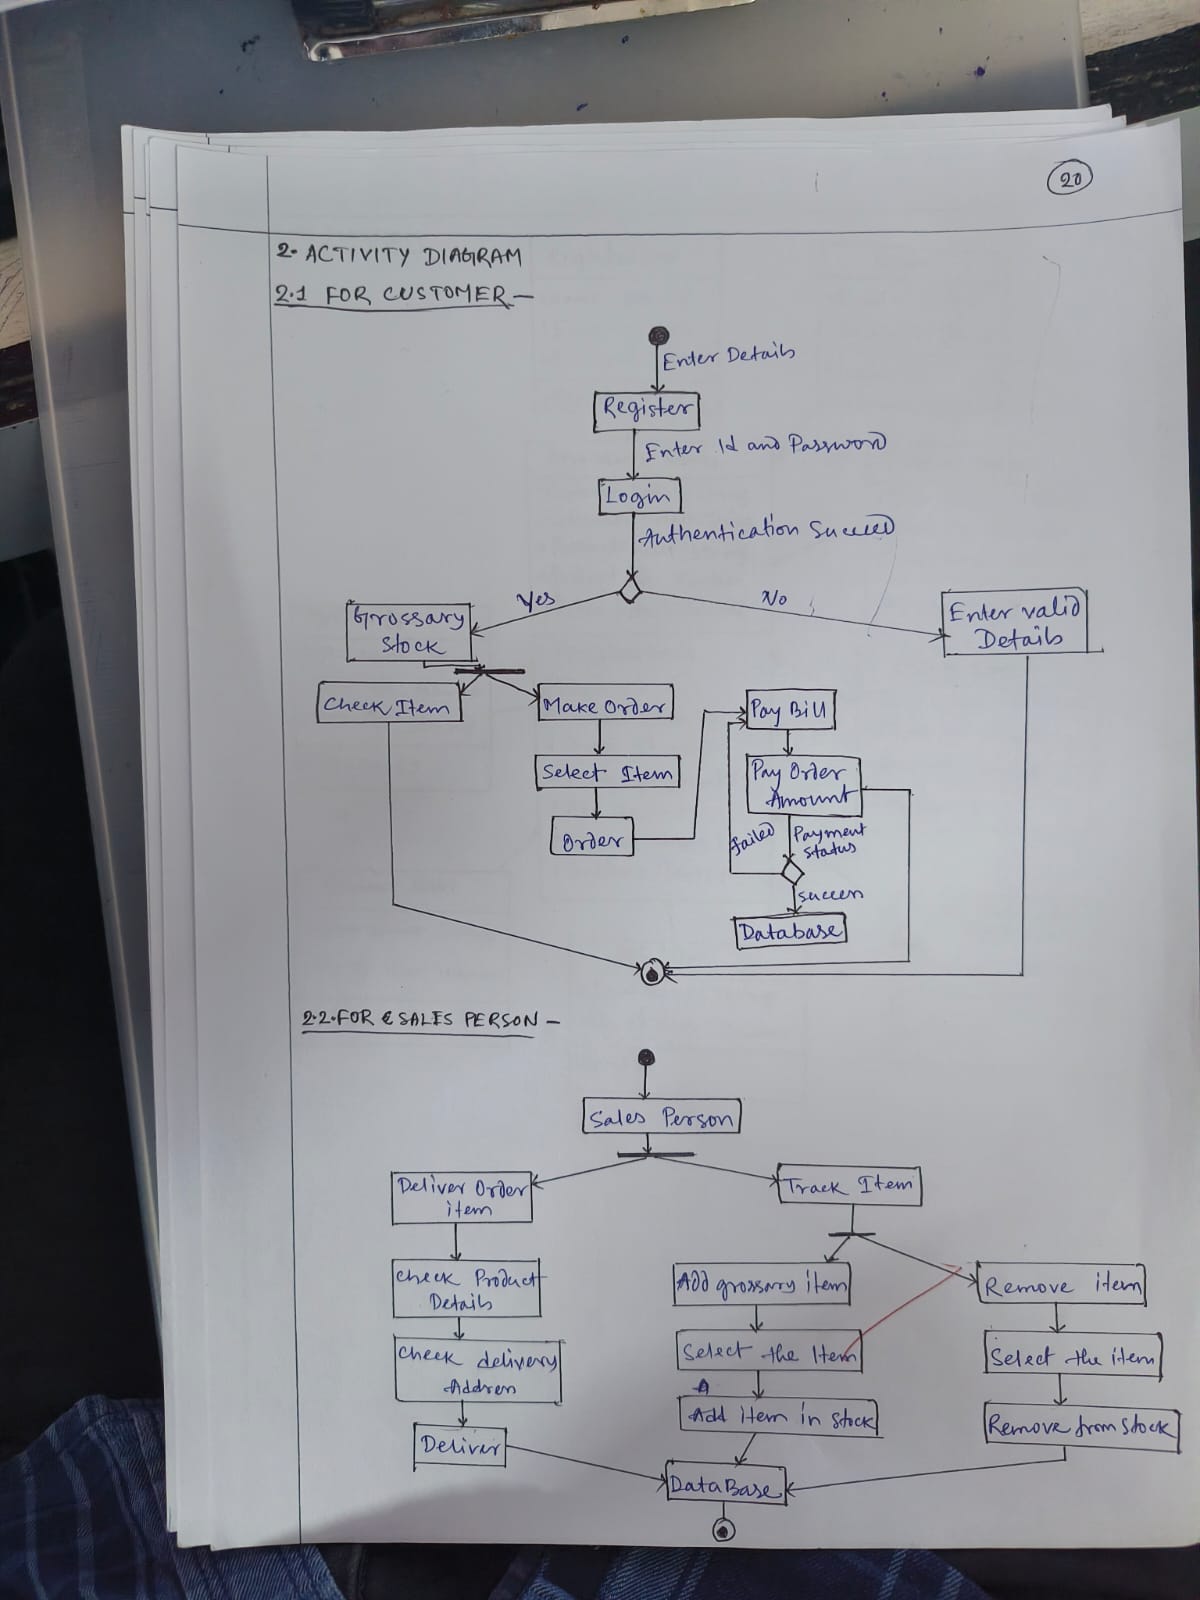 20
2. ACTIVITY DIAGRAM
2.1 FOR CUSTOMER -
Enter Details
Register
Enter Id and Password
Login
Authentication Succeed
Yes
No
Grossary
Stock
Enter valid
Details
Check Item
Make Order
Pay Bill
Select Item
Pay Order
Amount
Order
failed
Payment
Status
success
Database
2.2. FOR SALES PERSON -
Sales Person
Deliver Order
item
Track Item
Check Product
Details
Add grossary item
Remove item
Check delivery
Address
Select the Item
Select the item
A
Add item in stock
Remove from stock
Deliver
DataBase